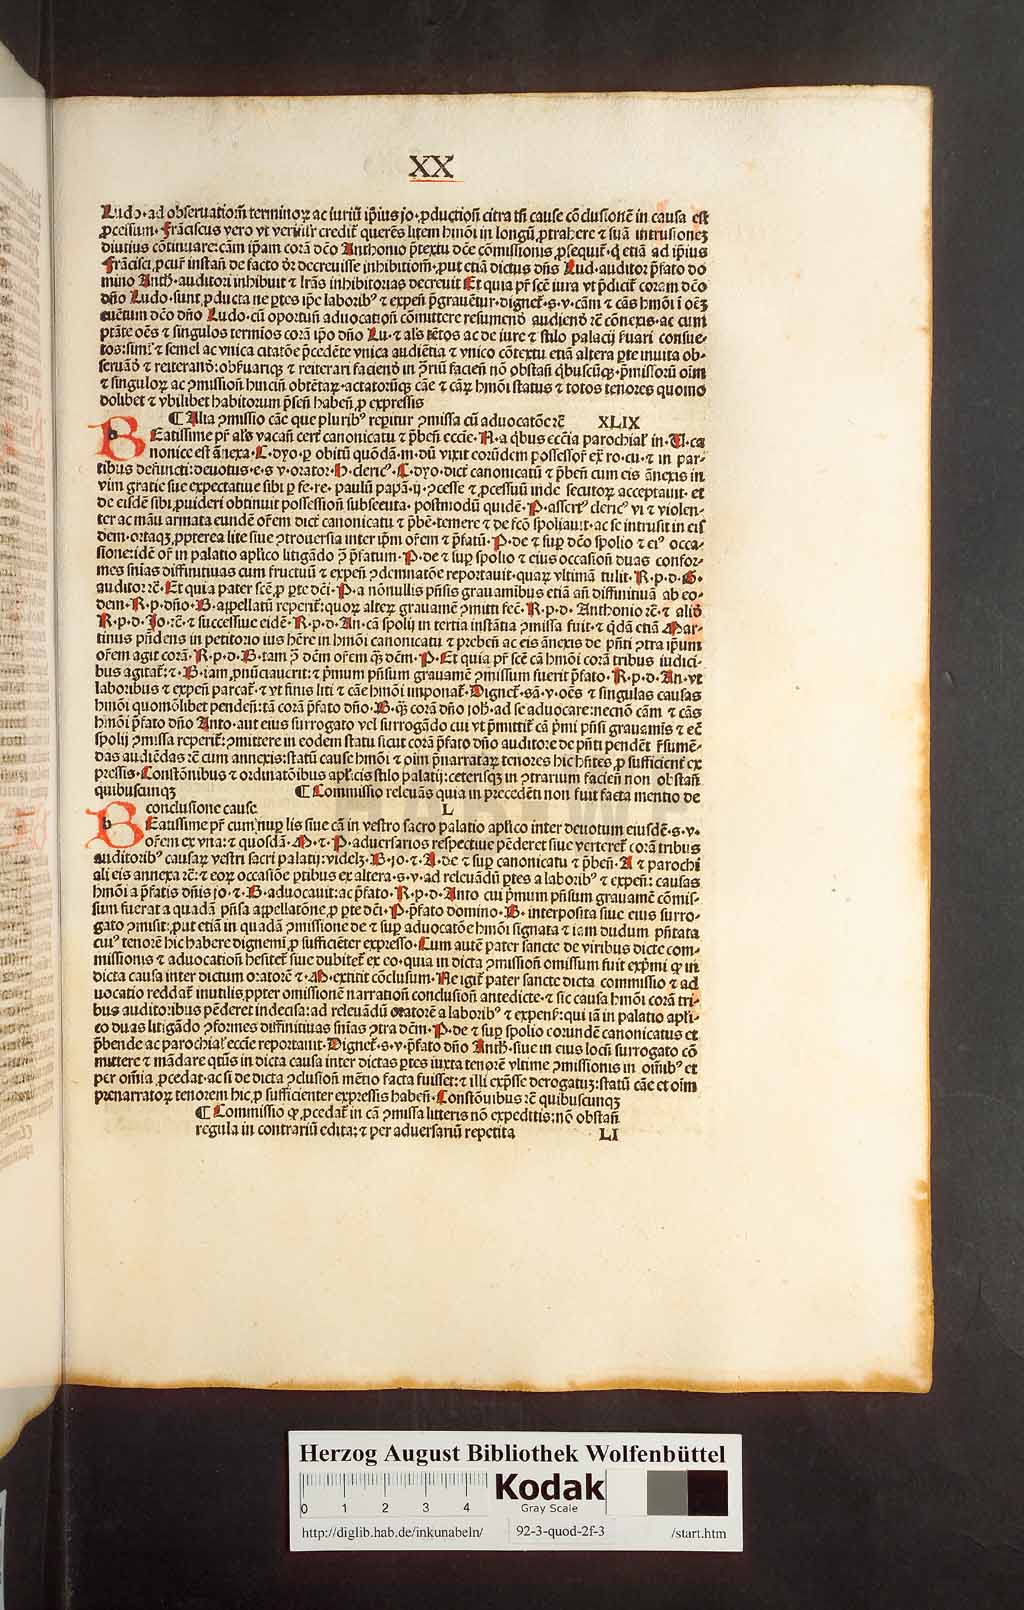 XX
Ludo· ad obseruationē terminoꝝ ac iuriū ip̄ius jo· ꝓductioń citra tn̄ cause cōclusionē in causa est
ꝓcessum· Frāciscus vero vt verisil'r credit̄ querēs litem hmōi in longū ꝓtrahere ⁊ suā intrusionez
diutius cōtinuare: cām ip̄am corā dc̄o Anthonio p̄textu dc̄e cōmissionis ꝓsequit̄· ꝙ etiā ad ip̄ius
Frācisci ꝓcur̄ instań de facto dr̄ decreuisse inhibitiom̄· put etiā dictus dn̄s Lud· auditor p̄fato do
mino Anth· auditori inhibuit ⁊ lr̄as inhibitorias decreuit Et quia pr̄ sc̄e iura vt p̄dicit̄ coram dc̄o
dn̄o Ludo· sunt ꝓducta ne ꝑtes ip̄e laboribꝰ ⁊ expeń p̄grauētur· dignet̄· s· v· cām ⁊ cās hmōi ī oēz
euētum dc̄o dn̄o Ludo· cū oportuń aduocatioń cōmittere resumend̄ audiend̄ rc̄ cōnexis· ac cum
ptāte oēs ⁊ singulos termīos corā ip̄o dn̄o Lu· ⁊ al's tētos ac de iure ⁊ stilo palacij ẜuari consue-
tos: siml' ⁊ semel ac vnica citatōe p̄cedēte vnica audiētia ⁊ vnico cōtextu etiā altera ꝑte inuita ob-
seruād̄ ⁊ reiterand̄: obẜuariqꝫ ⁊ reiterari faciend̄ in ꝯriū facień nō obstań qbuscūqꝫ· p̄missorū oim̄
⁊ singuloꝝ ac ꝯmissioń hincīn̄ obtētaꝝ· actatorūqꝫ cāe ⁊ cāꝝ hmōi status ⁊ totos tenores quomo
dolibet ⁊ vbilibet habitorum p̄sen̄ haben̄ ꝓ expressis
¶ Alia ꝯmissio cāe que pluribꝰ rep̄itur ꝯmissa cū aduocatōe rc̄ XLIX
BEatissime pr̄ al's vacań cert̄ canonicatu ⁊ p̄beń ecc̄ie· N· a qbus ecc̄ia parochial' in· T· ca
nonice est ānexa· C· dyo· ꝑ obitū quōdā· m· dū vixit corūdem possessor̄ ex̄ ro· cu· ⁊ in par-
tibus defuncti: deuotus· e· s· v· orator· H· cleric̄· C· dyo· dict̄ canonicatū ⁊ p̄beń cum eis ānexis in
vim gratie sue expectatiue sibi ꝑ fe· re· paulū papā· ij· ꝯcesse ⁊ ꝓcessuū inde secutoꝝ acceptauit· et
de eisdē sibi ꝓuideri obtinuit possessioń subsecuta· postmodū quidē· P· assert̄ cleric̄ vi ⁊ violen-
ter ac māu armata eundē or̄em dict̄ canonicatu ⁊ p̄bē· temere ⁊ de fc̄o spoliauit· ac se intrusit in eis
dem· ortaqꝫ ꝓpterea lite siue ꝯtrouersia inter ip̄m or̄em ⁊ p̄fatū· P· de ⁊ suꝑ dc̄o spolio ⁊ eiꝰ occa-
sione: idē or̄ in palatio ap̄lico litigādo ꝯ̄ p̄fatum· P· de ⁊ suꝑ spolio ⁊ eius occasioń duas confor-
mes sn̄ias diffinitiuas cum fructuū ⁊ expeń ꝯdemnatōe reportauit· quaꝝ vltimā tulit· R· p· d· G·
auditor rc̄· Et quia pater sc̄e ꝓ ꝑte dc̄i· P· a nōnullis p̄n̄sis grauamibus etiā an̄ diffinitiuā ab eo-
dem· R· p· dn̄o· B· appellatū reperit̄: quoꝝ alteꝝ grauamē ꝯmitti fec̄· R· p· d· Anthonio rc̄· ⁊ alio
R· p· d· Jo· rc̄· ⁊ successiue eidē· R· p· d· An· cā spolij in tertia instātia ꝯmissa fuit· ⁊ qdā etiā Mar-
tinus p̄ndens in petitorio ius hēre in hmōi canonicatu ⁊ prebeń ac eis ānexis de p̄nti ꝯtra ip̄um
or̄em agit corā· R· p· d· B· tam ꝯ̄ dc̄m or̄em qꝫ dc̄m· P· Et quia pr̄ sc̄e cā hmōi corā tribus iudici-
bus agitat̄: ⁊· B· iam ꝓnūciauerit: ⁊ p̄mum p̄n̄sum grauamē ꝯmissum fuerit p̄fato· R· p· d· An· vt
laboribus ⁊ expeń parcat̄· ⁊ vt finis liti ⁊ cāe hmōi imponat̄· Dignet̄· sā· v· oēs ⁊ singulas causas
hmōi quomōlibet pendeń: tā corā p̄fato dn̄o· B· qꝫ corā dn̄o joh̄· ad se aduocare: necnō cām ⁊ cās
hmōi p̄fato dn̄o Anto· aut eius surrogato vel surrogādo cui vt p̄mittit̄ cā p̄mi p̄n̄si grauamis ⁊ ec̄
spolij ꝯmissa reperit̄: ꝯmittere in eodem statu sicut corā p̄fato dn̄o auditore de p̄nti pendēt r̄sumē-
das audiēdas rc̄ cum annexis: statū cause hmōi ⁊ oim̄ p̄narrataꝝ tenores hic hn̄tes ꝓ sufficient̄ ex
pressis· Constōnibus ⁊ ordinatōibus apl'icis stilo palatij: ceterisqꝫ in ꝯtrarium facień non obstań
quibuscunqꝫ ¶ Commissio releuās quia in precedēti non fuit facta mentio de
conclusione cause L
BEatissime pr̄ cum nuꝑ lis siue cā in vestro sacro palatio ap̄lico inter deuotum eiusdē· s· v·
or̄em ex vna: ⁊ quosdā· M· ⁊· P· aduersarios respectiue pēderet siue verteret̄ corā tribus
auditoribꝰ causaꝝ vestri sacri palatij: videlꝫ· B· jo· ⁊· A· de ⁊ suꝑ canonicatu ⁊ p̄beń· A ⁊ parochi
ali eis annexa rc̄: ⁊ eoꝝ occasiōe ꝑtibus ex altera· s· v· ad releuādū ꝑtes a laboribꝰ ⁊ expeń: causas
hmōi a p̄fatis dn̄is jo· ⁊· B· aduocauit: ac p̄fato· R· p· d· Anto cui p̄mum p̄n̄sum grauamē cōmis-
sum fuerat a quadā p̄n̄sa appellatōne ꝓ ꝑte dc̄i· P· p̄fato domino· B· interposita siue eius surro-
gato ꝯmisit: put etiā in quadā ꝯmissione de ⁊ suꝑ aduocatōe hmōi signata ⁊ iam dudum p̄ntata
cuiꝰ tenorē hic habere dignemī ꝓ sufficiēter expresso· Cum autē pater sancte de viribus dicte com-
missionis ⁊ aduocatioń hesitet̄ siue dubitet̄ ex eo· quia in dicta ꝯmissioń omissum fuit exp̄mi ꝙ in
dicta causa inter dictum oratorē ⁊· M· extitit cōclusum· Ne igit̄ pater sancte dicta commissio ⁊ ad
uocatio reddat̄ inutilis ꝓpter omissionē narratioń conclusioń antedicte· ⁊ sic causa hmōi corā tri-
bus auditoribus pēderet indecisa: ad releuādū oratorē a laboribꝰ ⁊ expens̄: qui iā in palatio apl'i-
co duas litigādo ꝯformes diffinitiuas sn̄ias ꝯtra dc̄m· P· de ⁊ suꝑ spolio corundē canonicatus et
p̄bende ac parochial' ecc̄ie reportauit· Dignet̄· s· v· p̄fato dn̄o Anth̄· siue in eius locū surrogato cō
mittere ⁊ mādare qtūs in dicta causa inter dictas ꝑtes iuxta tenorē vltime ꝯmissionis in om̄ibꝰ et
per om̄ia ꝓcedat· ac si de dicta ꝯclusioń mētio facta fuisset: ⁊ illi exp̄sse derogatuꝫ: statū cāe et oim̄
prenarratoꝝ tenorem hic ꝓ sufficienter expressis habeń· Constōnibus rc̄ quibuscunqꝫ
¶ Commissio ꝙ ꝓcedat̄ in cā ꝯmissa litteris nō expeditis: nō obstań
regula in contrariū edita: ⁊ per aduersariū repetita LI
Herzog August Bibliothek Wolfenbüttel
0 1 2 3 4
Kodak
Gray Scale
http://diglib.hab.de/inkunabeln/ 92-3-quod-2f-3 /start.htm